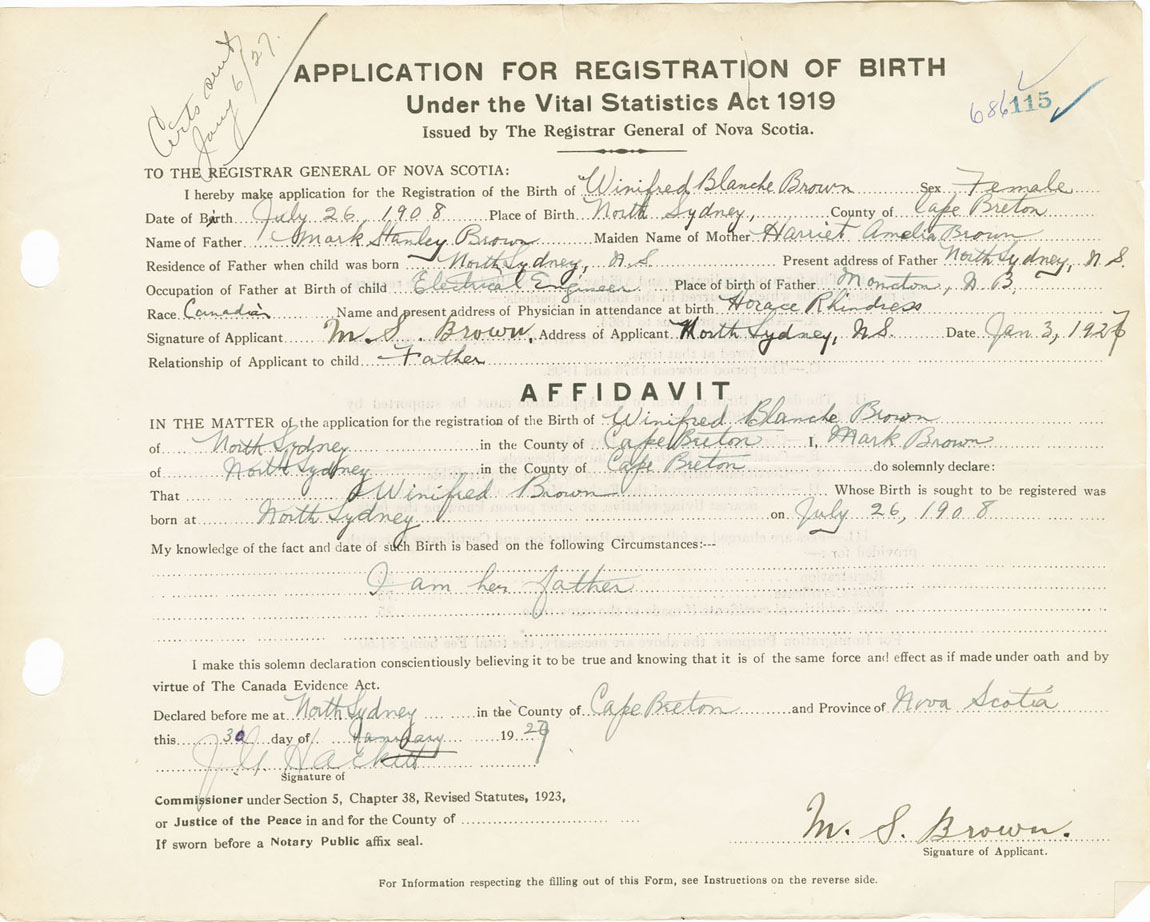 Certs sent
Jany 6/27.
APPLICATION FOR REGISTRATION OF BIRTH
Under the Vital Statistics Act 1919
686 115
Issued by The Registrar General of Nova Scotia.
TO THE REGISTRAR GENERAL OF NOVA SCOTIA:
I hereby make application for the Registration of the Birth of Winifred Blanche Brown Sex Female
Date of Birth July 26, 1908 Place of Birth North Sydney, County of Cape Breton
Name of Father Mark Stanley Brown Maiden Name of Mother Harriet Amelia Brown
Residence of Father when child was born North Sydney, N.S. Present address of Father North Sydney, N.S.
Occupation of Father at Birth of child Electrical Engineer Place of birth of Father Moncton, N B.
Race Canadian Name and present address of Physician in attendance at birth Horace Rhindress
Signature of Applicant M. S. Brown. Address of Applicant North Sydney, N.S. Date Jan 3, 1927
Relationship of Applicant to child Father
AFFIDAVIT
IN THE MATTER of the application for the registration of the Birth of Winifred Blanche Brown
of North Sydney in the County of Cape Breton I, Mark Brown
of North Sydney in the County of Cape Breton do solemnly declare:
That Winifred Brown Whose Birth is sought to be registered was
born at North Sydney on July 26, 1908
My knowledge of the fact and date of such Birth is based on the following Circumstances:---
I am her father
I make this solemn declaration conscientiously believing it to be true and knowing that it is of the same force and effect as if made under oath and by
virtue of The Canada Evidence Act.
Declared before me at North Sydney in the County of Cape Breton and Province of Nova Scotia
this 3d day of January 1927
Hackett
Signature of
Commissioner under Section 5, Chapter 38, Revised Statutes, 1923,
or Justice of the Peace in and for the County of
If sworn before a Notary Public affix seal.
M. S. Brown.
Signature of Applicant.
For Information respecting the filling out of this Form, see Instructions on the reverse side.